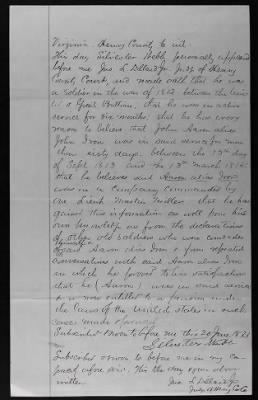 Virginia. Henry County to wit.
This day Silvester Webb personally appeared
before me Jno L Dillard Jr. Judge of Henry
County Court, and made oath that he was
a soldier in the war of 1812 between the Uni
ted & Great Brittian, that he was in active
service for six months; that he has every
reason to believe that John Aaron alias
John Iron was in said service for more
than sixty days between the 13th day
of Sept 1813 and the 13th March 1814;
that he believes said Aaron alias Iron
was in a company commanded by
one Lieut Martin Miller that he has
gained this information as well from his
own knowledge as from the declarations
of other old soldiers who were comrades
Aaron alias Iron & from repeated
conversations with said Aaron alias Iron
in which he proved to his satisfaction
that he (Aaron) was in said service
& is now entitled to a pension under
the laws of the United States in such
cases made & provided
Subscribed & sworn to before me this 20 June 1881
Silvester Webb
Subscribed & sworn to before me in my
capacity as Judge. This the day above
written.
Jno L Dillard Jr
Judge of Henry Co Ct